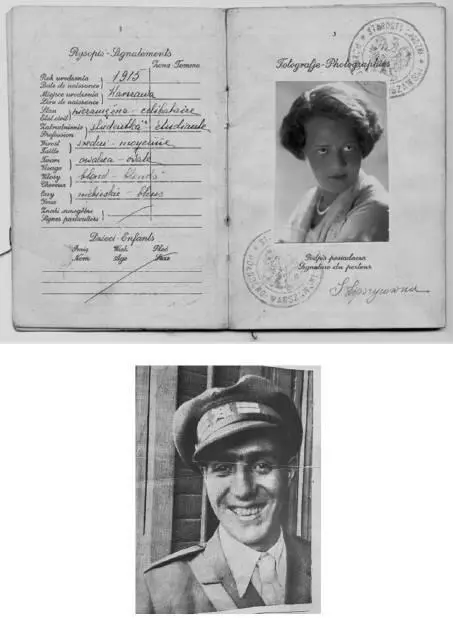 Rysopis - Signalements
Żona-Femme
Rok urodzenia
Date de naissance
1915
Miejsce urodzenia
Lieu de naissance
Warszawa
Stan
Etat civil
niezamężna - célibataire
Zatrudnienie
Profession
studentka - étudiante
Wzrost
Taille
średni - moyenne
Twarz
Visage
owalna - ovale
Włosy
Cheveux
blond - blonds
Oczy
Yeux
niebieskie - bleus
Znaki szczególne
Signes particuliers
Dzieci - Enfants
Imię Wiek Płeć
Nom Age Sexe
3
Fotografje-Photographies
Podpis posiadacza
Signature du porteur